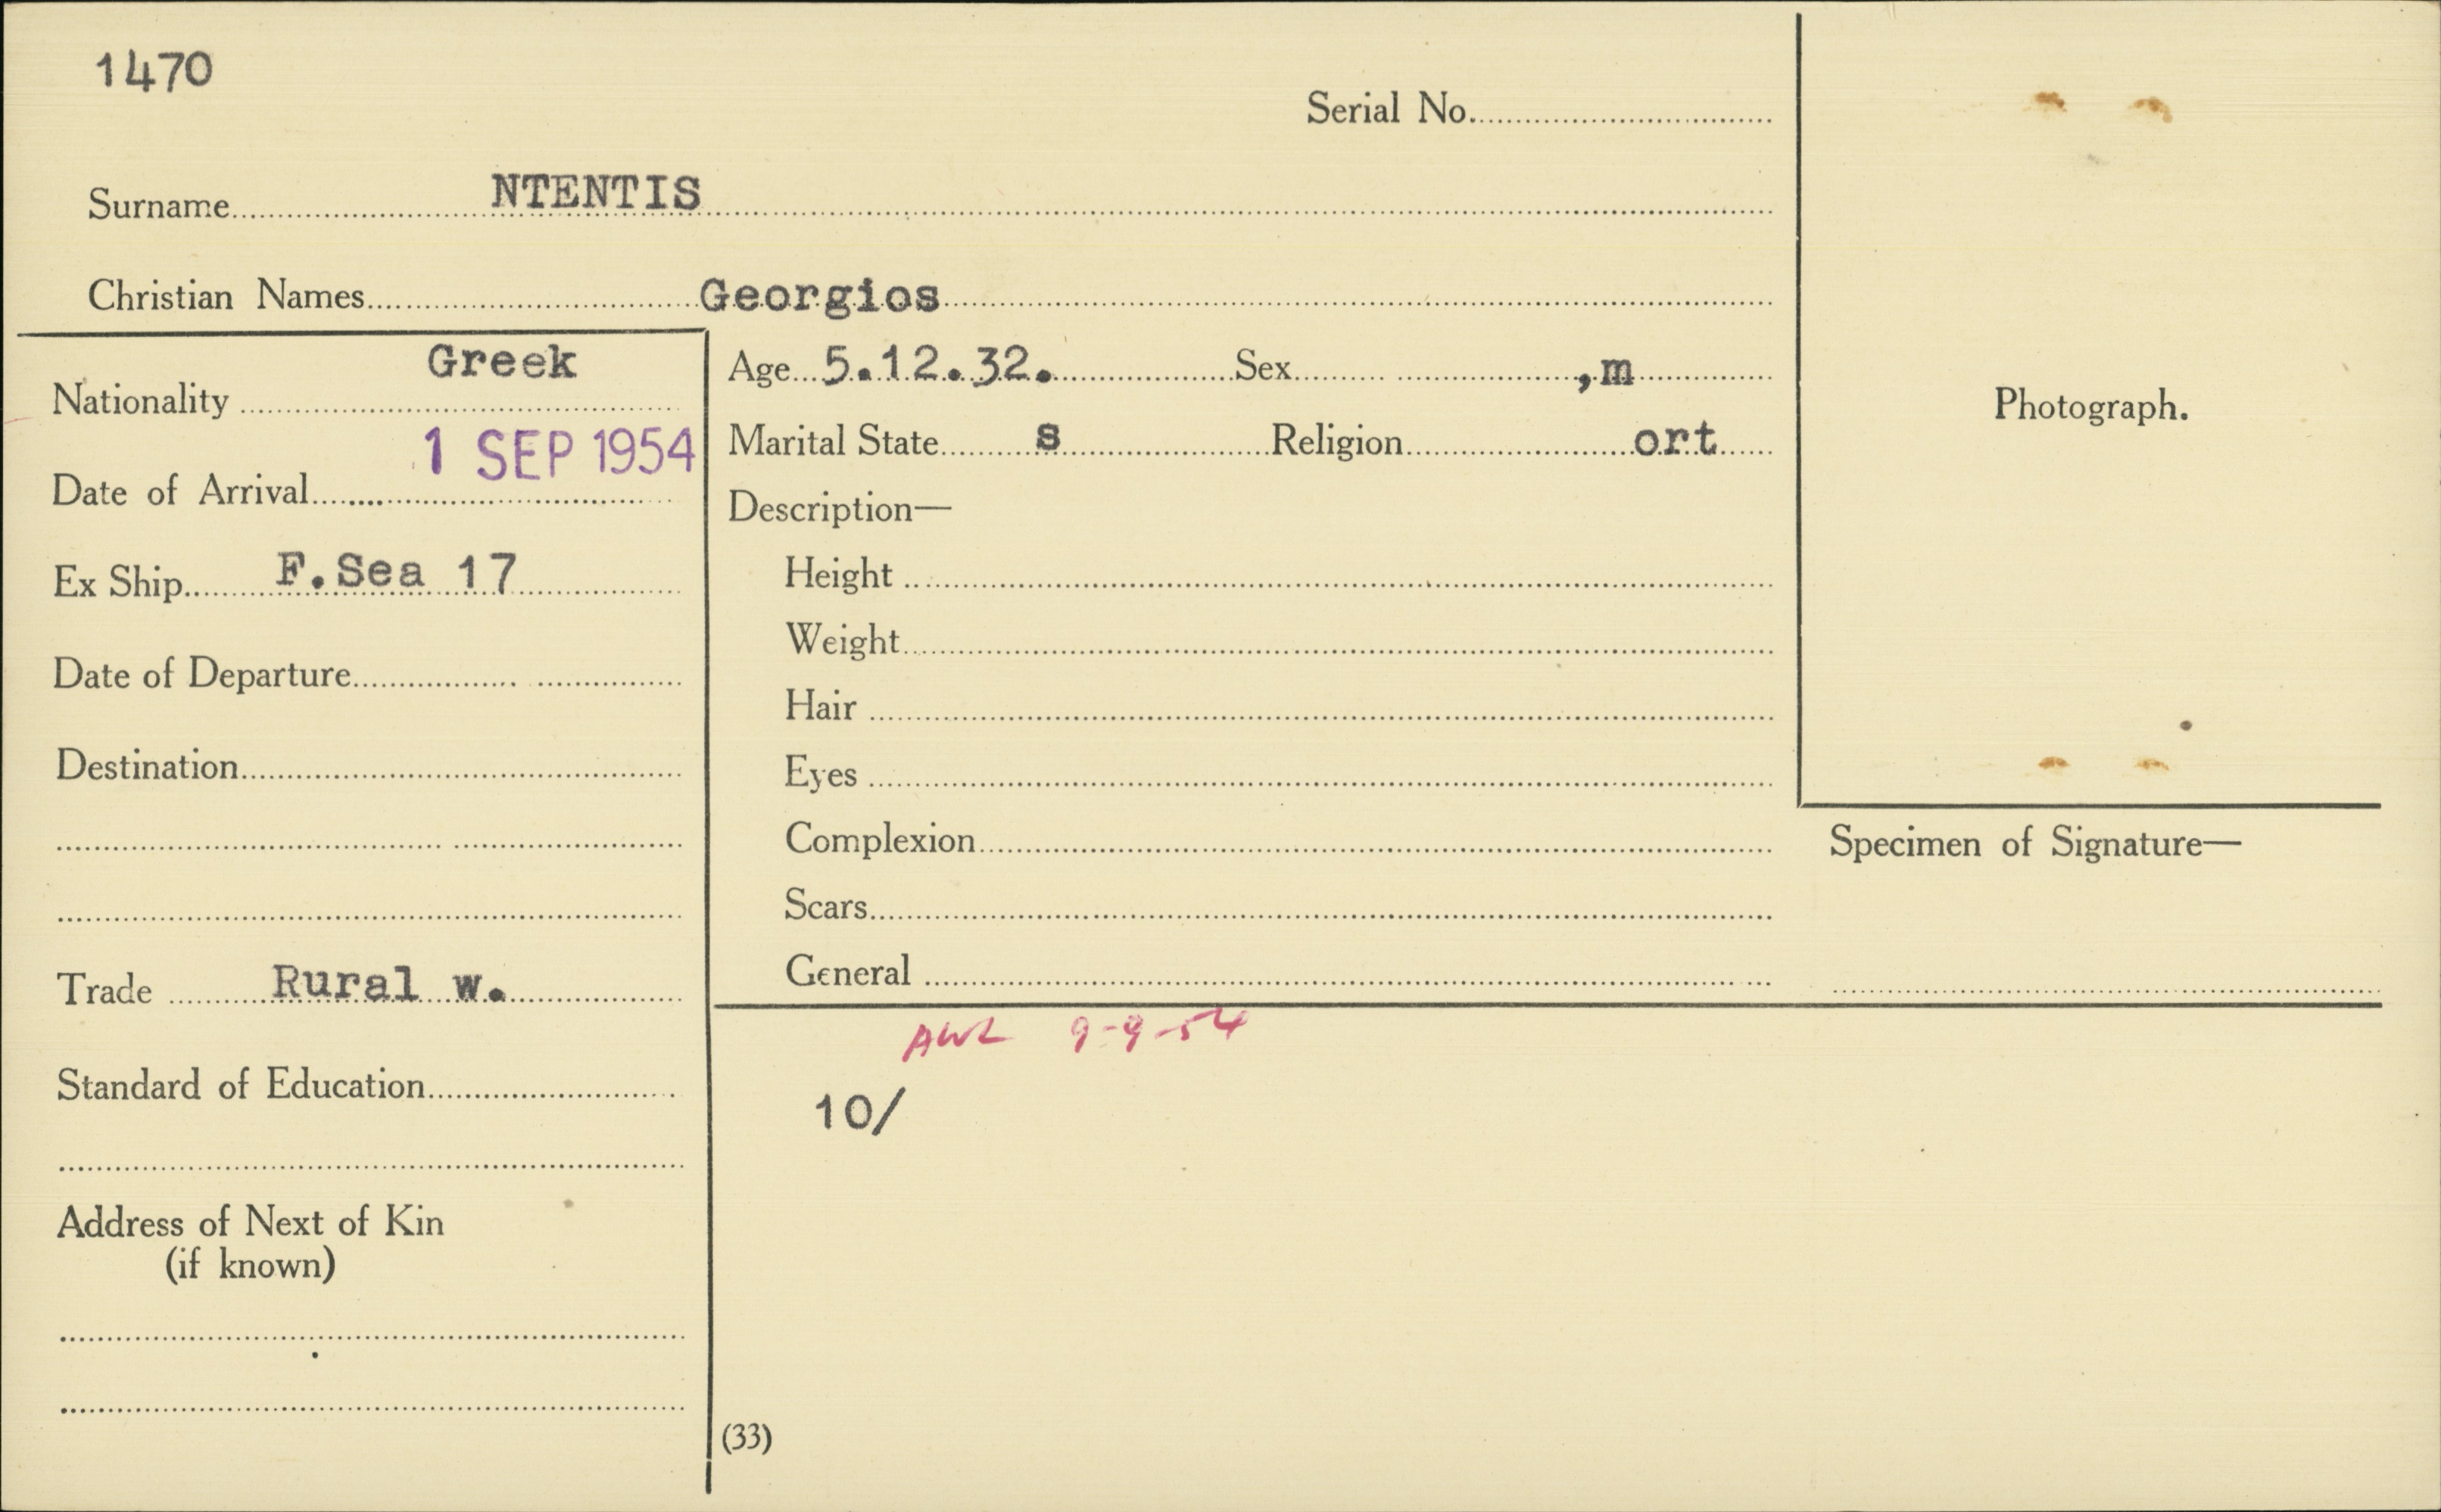 1470
Serial No.
Surname NTENTIS
Christian Names Georgios
Nationality Greek
Date of Arrival 1 SEP 1954
Ex Ship F.Sea 17
Date of Departure
Destination
Trade Rural w.
Standard of Education
Address of Next of Kin
(if known)
Age 5.12.32. Sex ,m
Marital State s Religion ort
Description—
Height
Weight
Hair
Eyes
Complexion
Scars
General
Photograph.
Specimen of Signature—
AWL 9-9-54
10/
(33)